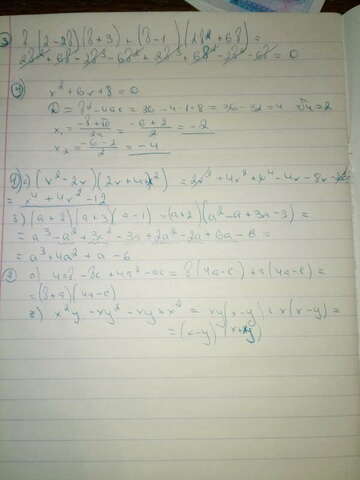 3) b(2-2b)(b+3)+(b-1)(2b²+6b)=
2b²+6b-2b³-6b²+2b³+6b²-2b²-6b=0
4)
x²+6x+8=0
D=b²-4ac=36-4·1·8=36-32=4 √4=2
x₁= -b+√D / 2a = -6+2 / 2 = -2
x₂= -6-2 / 2 = -4
1) a) (x²-2x)(2x+4+x²)=2x³+4x²+x⁴-4x-8x
= x⁴+4x²-12
(a+2)(a+3)(a-1)=(a+2)(a²-a+3a-3)=
= a³-a²+3a²-3a+2a²-2a+6a-6=
= a³+4a²+a-6
2) a) 4ab-bc+4a-c=b(4a-c)+(4a-c)=
=(4a-c)
x²y-xy²-xy+x²=xy(x-y)+x(x-y)=
=(x-y)(x+xy)